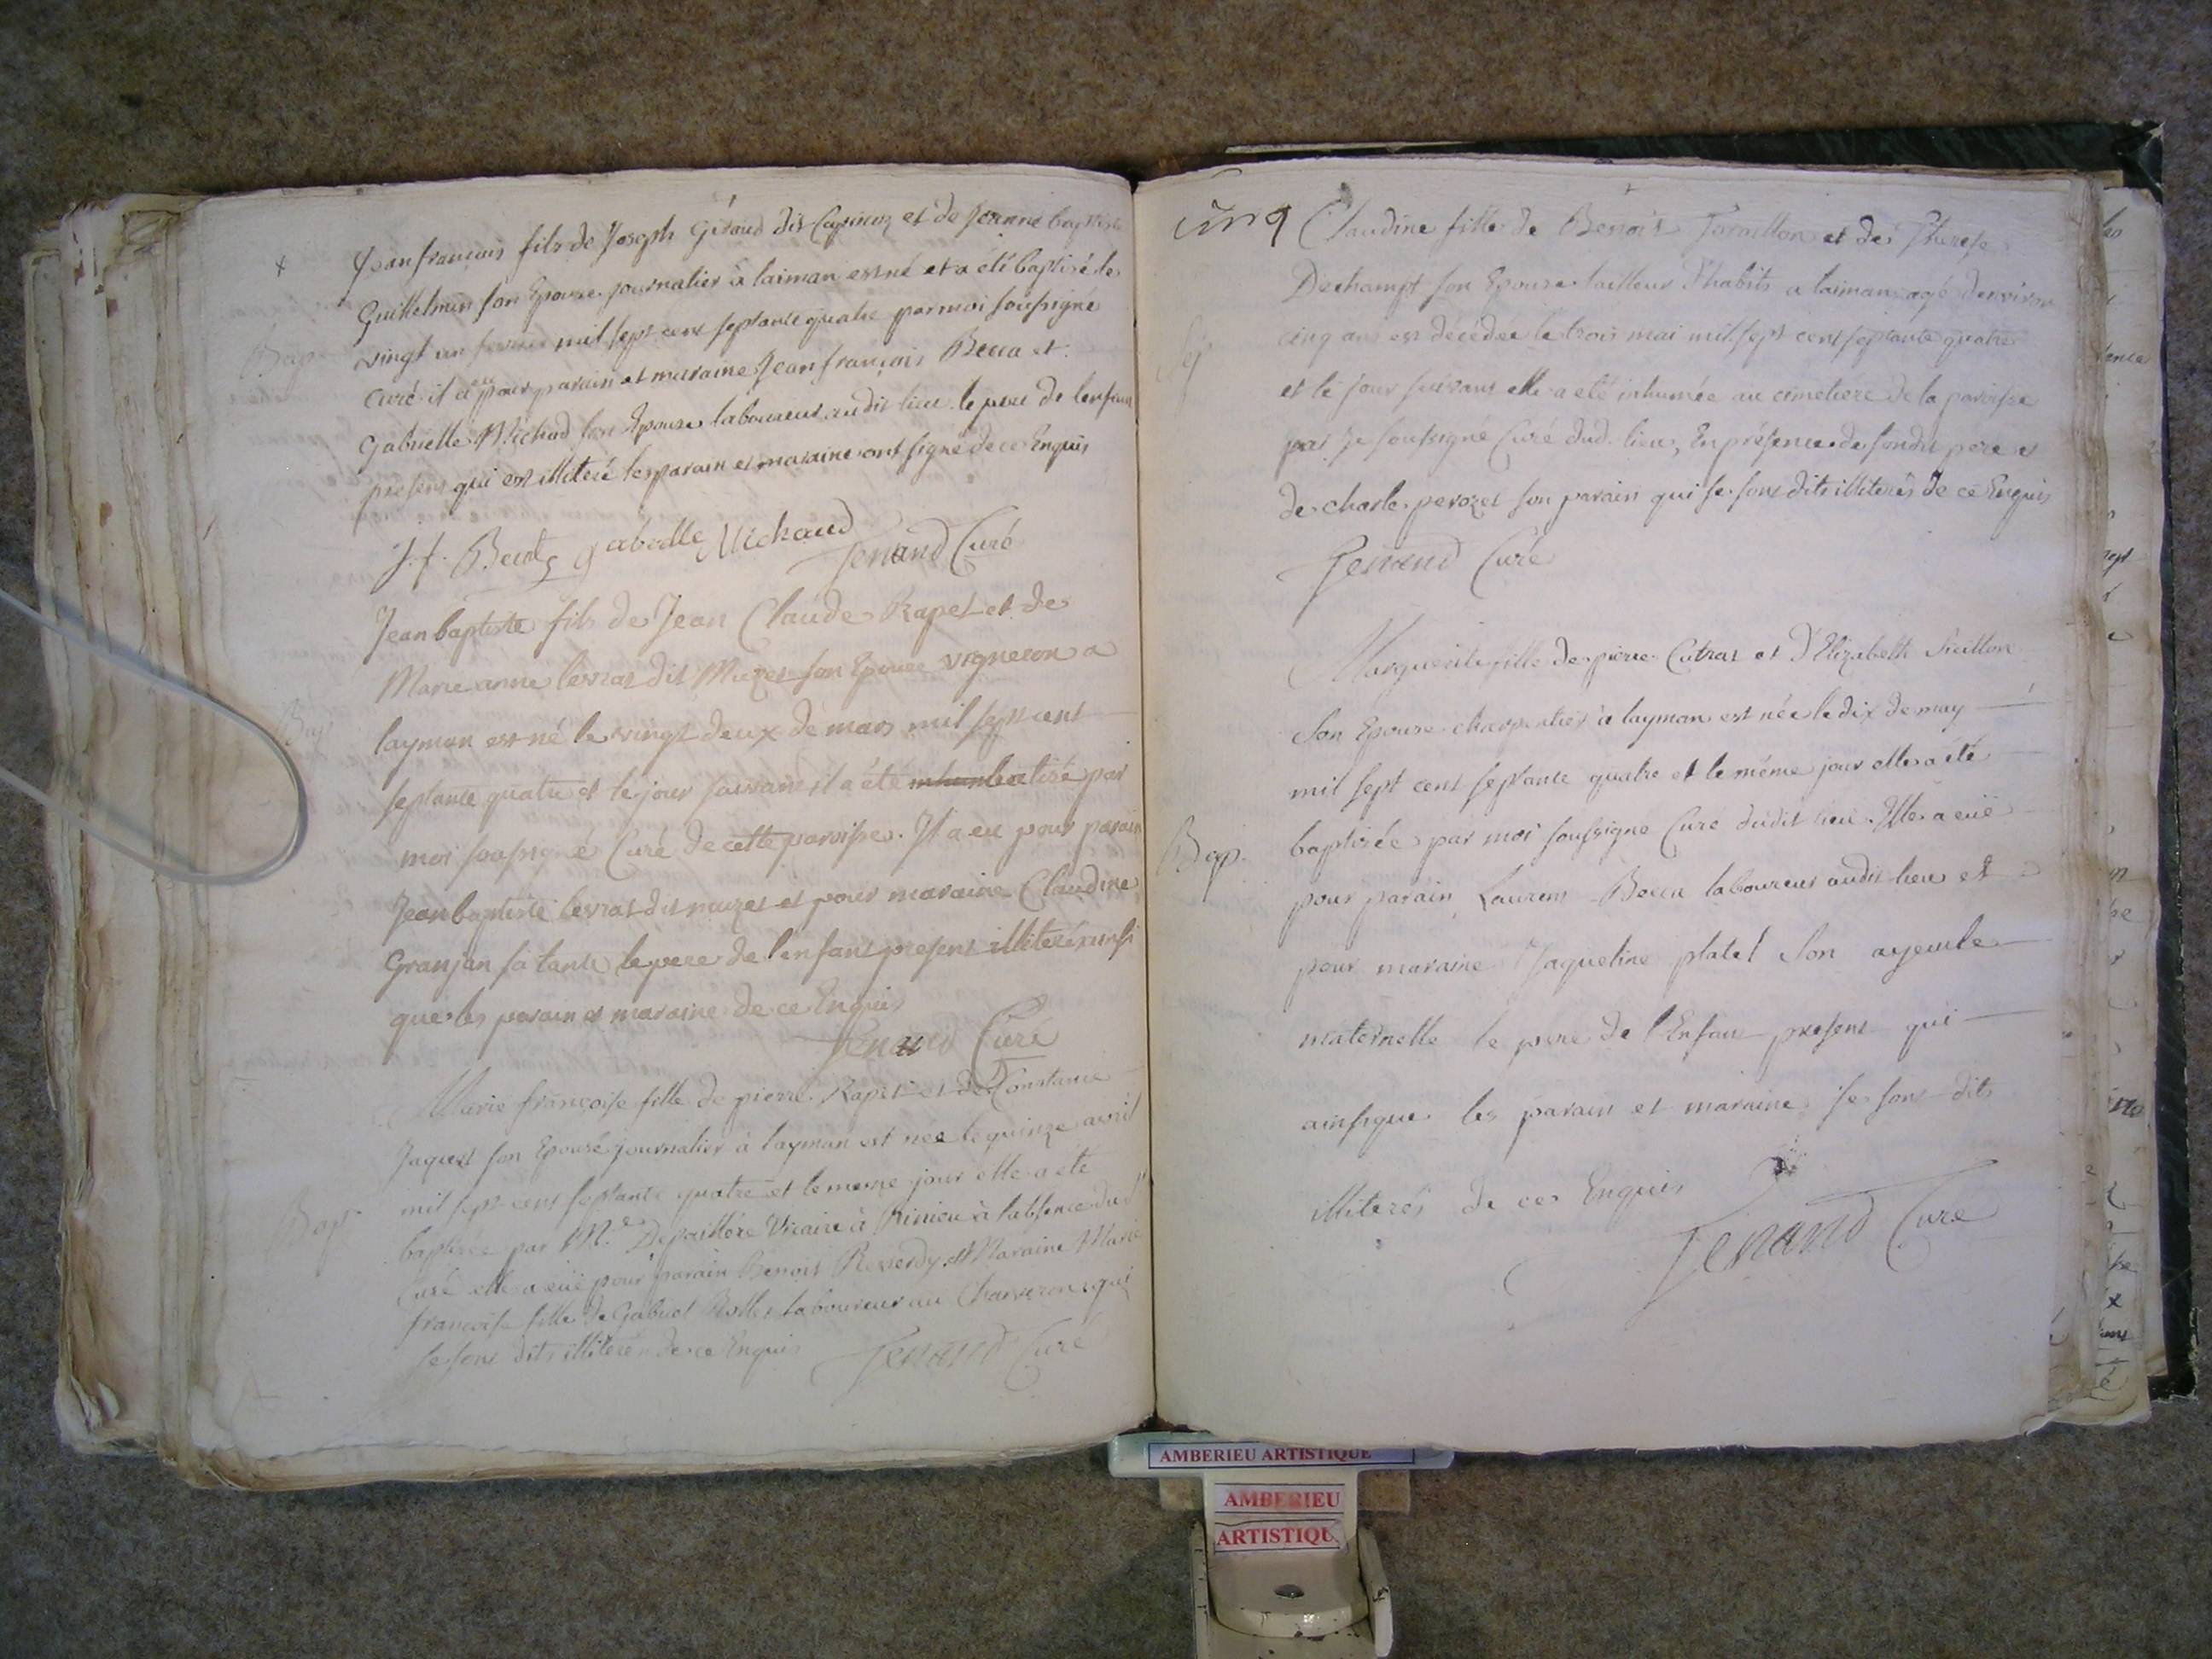 Jean françois fils de Joseph Géraud dit Capinoz et de Jeanne baptiste
Guillelmin son Epouse journalier à laiman est né et a été baptisé le
Bap
vingt un fevrier mil sept cent septante quatre par moi soussigné
curé il a eu pour parain et maraine Jean françois Becca et
Gabrielle Michod son Epouse laboureur audit lieu le pere de l'enfant
present qui est illiteré les parain et maraine ont signé de ce Enquis
J. f. gabrielle Michaud
Jenand Curé
Jean baptiste fils de Jean Claude Rapet et de
Marie anne levrat dit Muzet son Epouse vigneron a
Bap
layman est né le vingt deux de mars mil sept cent
septante quatre et le jour suivant il a été batisé par
moi soussigné Curé de cette paroisse. Il a eu pour parain
Jean baptiste levrat dit muzet et pour maraine Claudine
Granjan sa tante le pere de l'enfant present illiteré ainsi
que les parain et maraine de ce Enquis
Jenand Curé
Marie françoise fille de pierre Rapet et de Constance
Jaquet son Epouse journalier à layman est née le quinze avril
mil sept cent septante quatre et le meme jour elle a été
Bapt
baptisée par Mre. Vicaire à à l'absence dud
Curé elle a eüe pour parain Benoit Reverdy et Maraine Marie
françoise fille de Gabriel laboureur au qui
se sont dits illiterés de ce Enquis
Jenand Curé
cinq
Claudine fille de Benoit et de Therese
Dechampt son Epouse tailleur d'habits a laiman agé d'environ
Sep
cinq ans est décédée le trois mai mil sept cent septante quatre
et le jour suivant elle a été inhumée au cimetiere de la paroisse
par Je soussigné Curé dud. lieu, En présence de sondit pere et
de charle perozet son parain qui se sont dits illiterés de ce Enquis
Jenand Curé
Marguerite fille de pierre Cutrat et d'Elizabeth
son Epouse charpentier à layman est née le dix de may
mil sept cent septante quatre et le même jour elle a été
Bap.
baptisée par moi soussigné Curé dudit lieu. Elle a eüe
pour parain Laurent Becca laboureur audit lieu et
pour maraine Jaqueline platel son ayeule
maternelle le pere de l'Enfant present qui
ainsi que les parain et maraine se sont dits
illiterés de ce Enquis
Jenand Curé
AMBERIEU ARTISTIQUE
AMBERIEU
ARTISTIQU